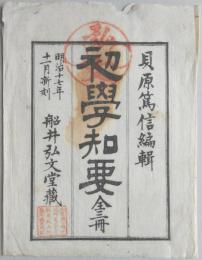 貝原篤信編輯
初學知要 全三冊
明治十七年
十一月新刻
船井弘文堂藏